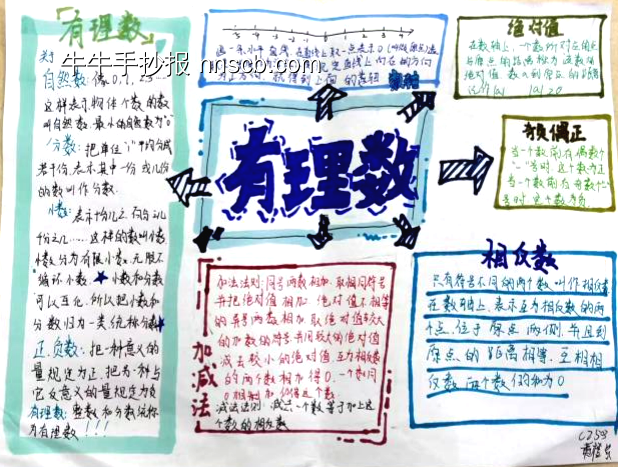 「有理数」
关于
自然数:像0,1,2……
这样表示物体个数的数
叫自然数.最小的自然数为"0"
分数:把单位"1"平均分成
若干份,表示其中一份或几份
的数叫作分数.
小数:表示十份几之、百份几
千份之几……这样的数叫小数
小数分为有限小数、无限不
循环小数★小数和分数
可以互化,所以把小数和
分数归为一类,统称分数★
正、负数:把一种意义的
量规定为正,把另一种与
它反意义的量规定为负
有理数:整数和分数统称
为有理数!!!
牛牛手抄报 nnscb.com
-4 -3 -2 -1 0 1 2 3 4
画一条水平直线,在直线上取一点表示0
规定直线上向右的方向
为正方向,就得到上面的数轴
数轴
绝对值
在数轴上,一个数所对应的点
与原点的距离称为该数的
绝对值.
奇负偶正
当一个数前有偶数个
"-"号时,这个数为正
当一个数前有奇数个"-"
号时,这个数为负.
有理数
加减法
加法法则:同号两数相加,取相同符号
并把绝对值相加.绝对值不相等
的异号两数相加,取绝对值较大
的加数的符号,并用较大的绝对值
减去较小的绝对值.互为相反数
的两个数相加得0.一个数同
0相加,仍得这个数.
减法法则:减去一个数等于加上这
个数的相反数
相反数
只有符号不同的两个数叫作相反数
在数轴上,表示互为相反数的两
个点,位于原点两侧,并且到
原点的距离相等.互相相
反数两个数的和为0
C759